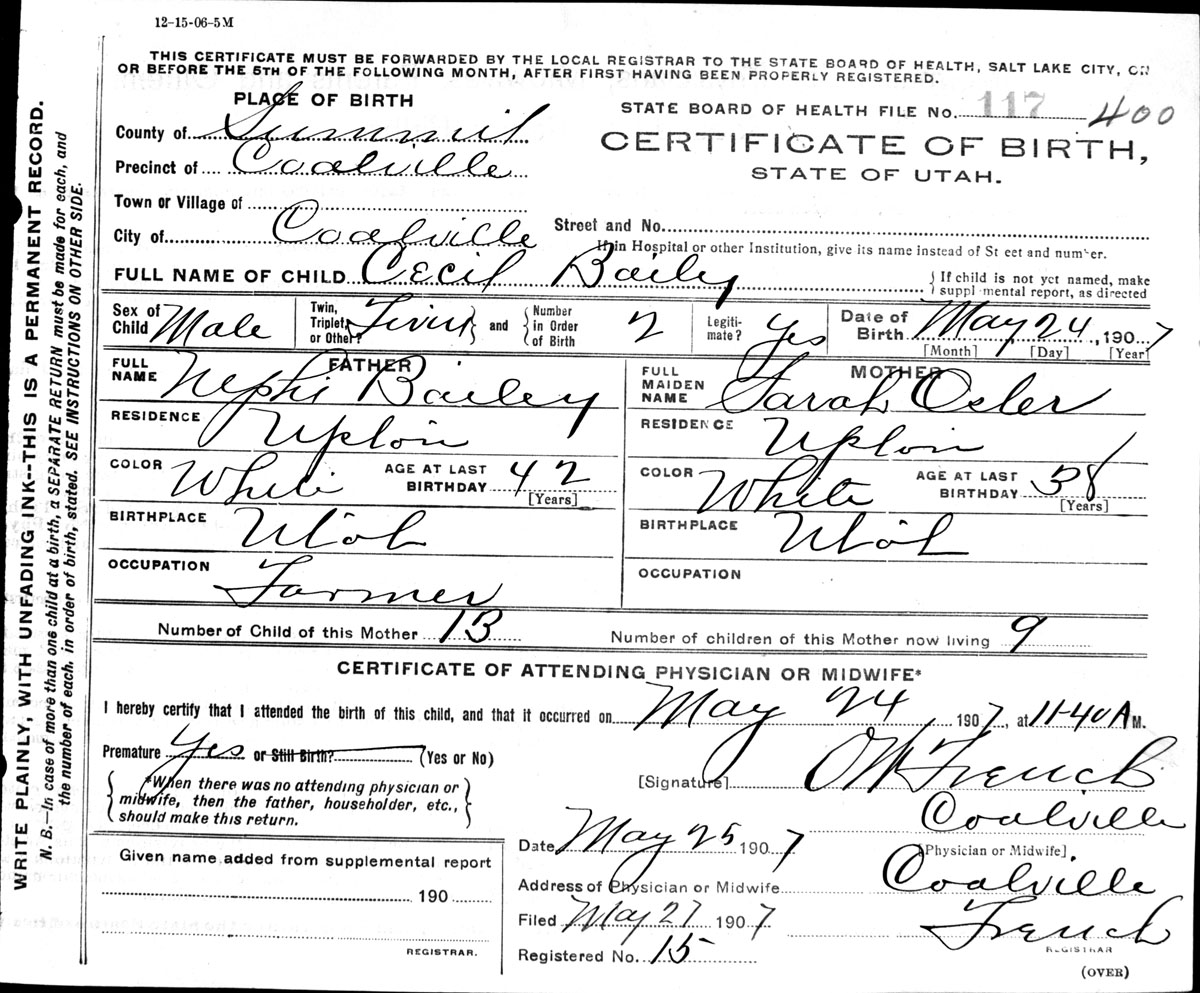 12-15-06-5M
THIS CERTIFICATE MUST BE FORWARDED BY THE LOCAL REGISTRAR TO THE STATE BOARD OF HEALTH, SALT LAKE CITY, ON
OR BEFORE THE 5TH OF THE FOLLOWING MONTH, AFTER FIRST HAVING BEEN PROPERLY REGISTERED.
WRITE PLAINLY, WITH UNFADING INK--THIS IS A PERMANENT RECORD.
N. B.—In case of more than one child at a birth, a SEPARATE RETURN must be made for each, and
the number of each, in order of birth, stated. SEE INSTRUCTIONS ON OTHER SIDE.
PLACE OF BIRTH
County of Summit
Precinct of Coalville
Town or Village of
City of Coalville
STATE BOARD OF HEALTH FILE No. 117 400
CERTIFICATE OF BIRTH,
STATE OF UTAH.
Street and No.
If in Hospital or other Institution, give its name instead of St eet and number.
FULL NAME OF CHILD Cecil Baily
{ If child is not yet named, make
suppl mental report, as directed
Sex of Child Male Twin, Triplet, or Other? Twin and { Number in Order of Birth 2 Legiti-mate? Yes Date of Birth May 24, 1907
[Month] [Day] [Year]
FATHER
FULL NAME Nephi Bailey
RESIDENCE Upton
COLOR White AGE AT LAST BIRTHDAY 42
[Years]
BIRTHPLACE Utah
OCCUPATION Farmer
MOTHER
FULL MAIDEN NAME Sarah Osler
RESIDENCE Upton
COLOR White AGE AT LAST BIRTHDAY 38
[Years]
BIRTHPLACE Utah
OCCUPATION
Number of Child of this Mother 13 Number of children of this Mother now living 9
CERTIFICATE OF ATTENDING PHYSICIAN OR MIDWIFE*
I hereby certify that I attended the birth of this child, and that it occurred on May 24, 1907, at 11-40 A M.
Premature Yes or Still Birth? (Yes or No)
{ *When there was no attending physician or
midwife, then the father, householder, etc.,
should make this return. }
[Signature] French
Coalville
[Physician or Midwife]
Date May 25 1907
Address of Physician or Midwife Coalville
Filed May 27 1907 French
REGISTRAR
Registered No. 15
(OVER)
Given name added from supplemental report
190
REGISTRAR.